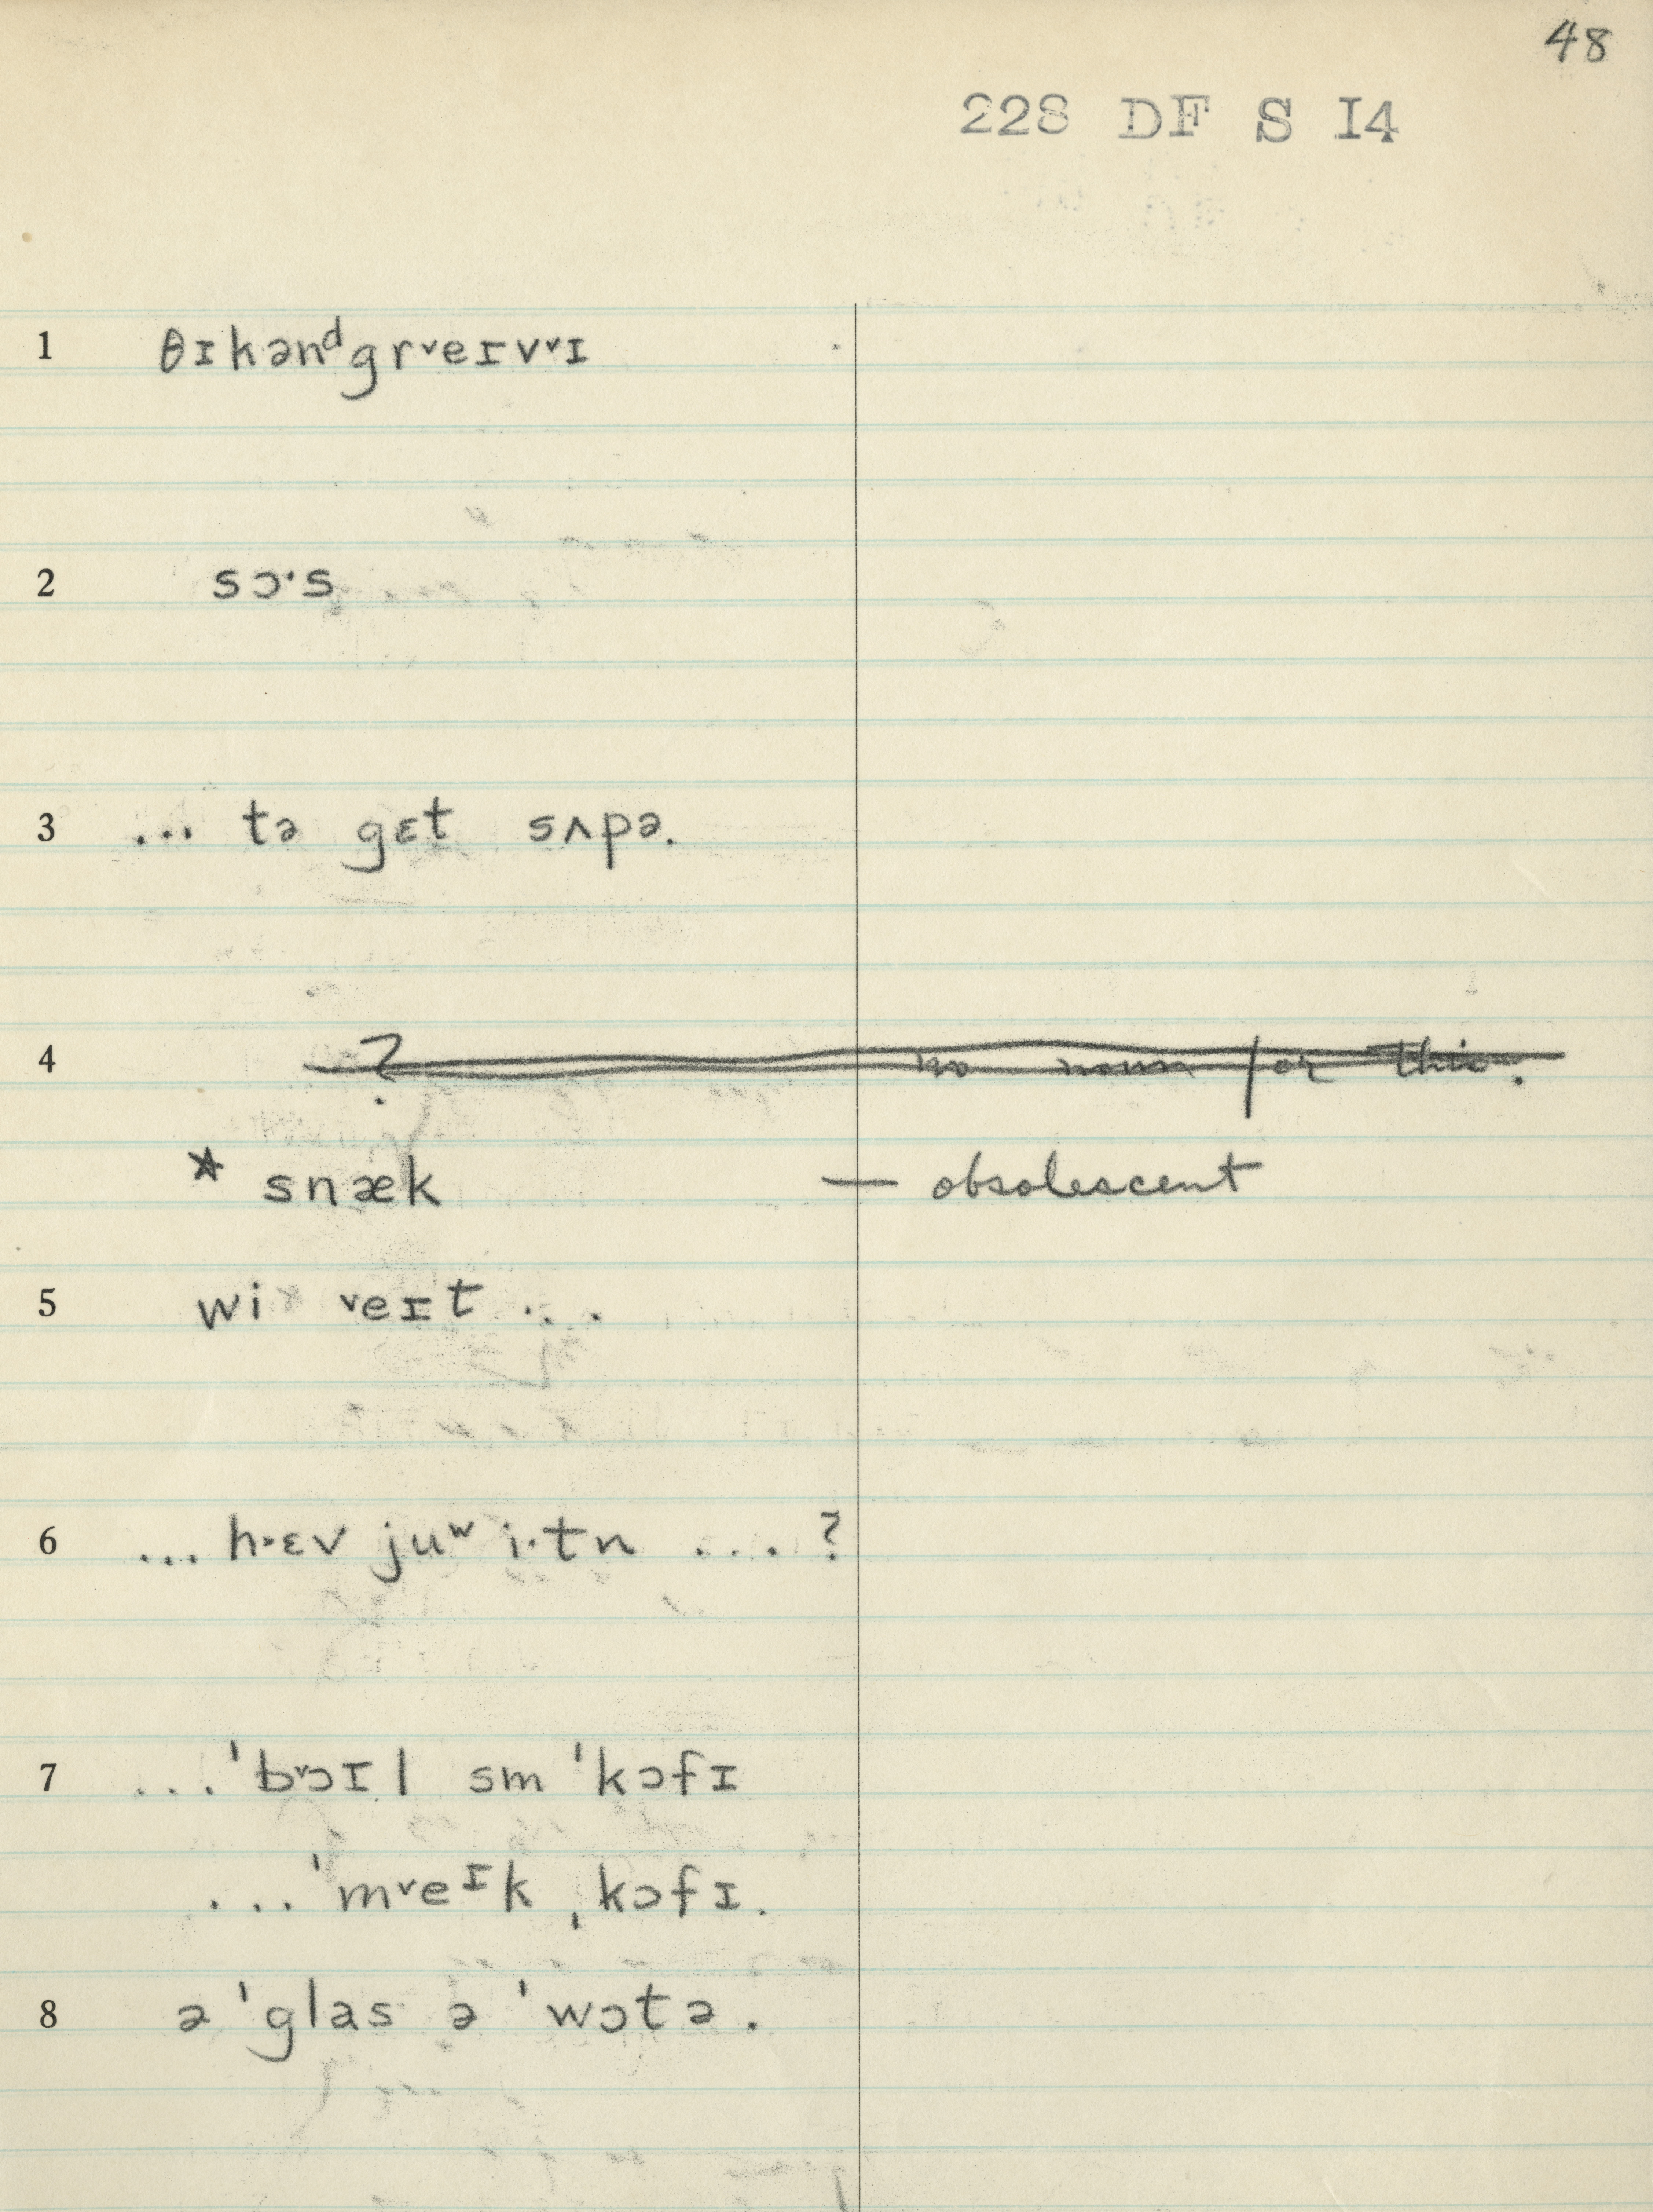 48
228 DF S I4
1 θɪkənᵈgrᵛeɪvᵛɪ
2 sɔ·s
3 ... tə gɛt sʌpə.
4 ? no noun for this.
* snæk — obsolescent
5 wi ᵛeɪt ...
6 ... h˃ɛv juʷ i·tn ... ?
7 ...ˈbᵛɔɪl smˈkɔfɪ
...ˈmᵛeᶦk ˌkɔfɪ.
8 ə ˈglas ə ˈwɔtə.